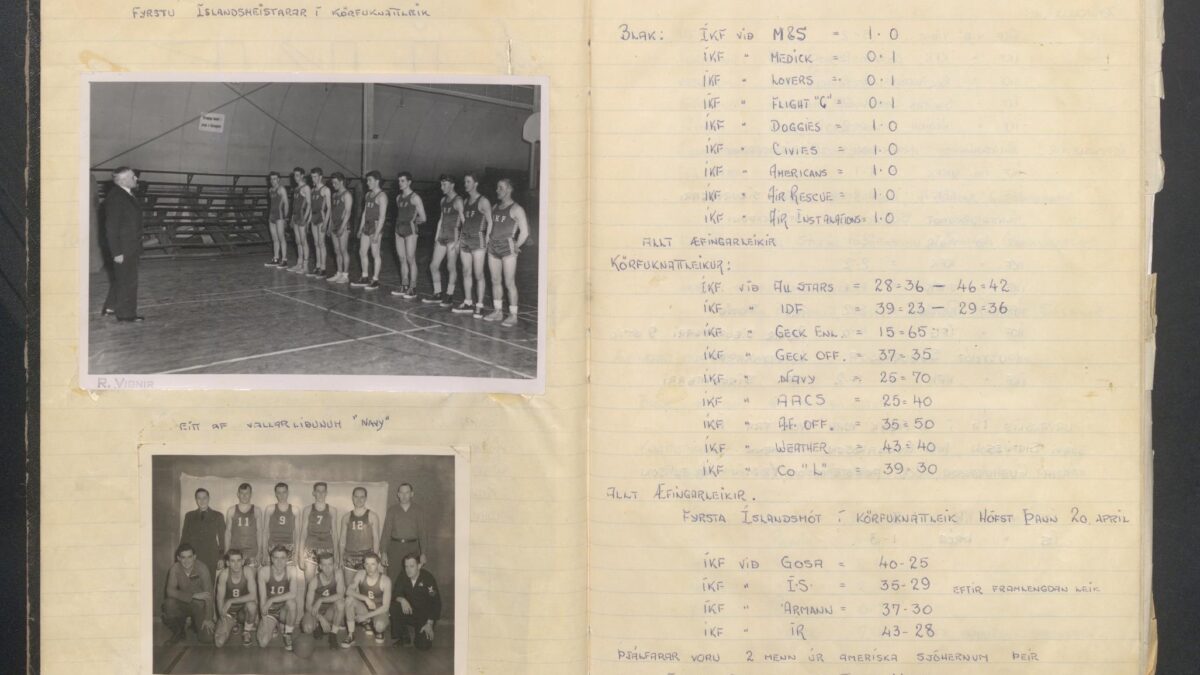 Fyrstu Íslandsmeistarar í körfuknattleik
R. Vignir
Eitt af vallarliðunum "Navy"
11 9 7 12
8 10 4 6
Blak: ÍKF við M&S = 1·0
ÍKF " Medick = 0·1
ÍKF " Lovers = 0·1
ÍKF " Flight "C" = 0·1
ÍKF " Doggies = 1·0
ÍKF " Civies = 1·0
ÍKF " Americans = 1·0
ÍKF " Air Rescue = 1·0
ÍKF " Air Instalations = 1·0
Allt æfingarleikir
Körfuknattleikur:
ÍKF við All stars = 28=36 — 46=42
ÍKF " IDF = 39=23 — 29=36
ÍKF " Geck Enl. = 15=65
ÍKF " Geck Off. = 37=35
ÍKF " Navy = 25=70
ÍKF " AACS = 25=40
ÍKF " Off. = 35=50
ÍKF " Weather = 43=40
ÍKF " Co "L" = 39=30
Allt æfingarleikir.
Fyrsta Íslandsmót í körfuknattleik hófst þann 20. apríl
ÍKF við Gosa = 40-25
ÍKF " Í.S. = 35-29 eftir framlengdan leik
ÍKF " Ármann = 37-30
ÍKF " ÍR = 43-28
Þjálfarar voru 2 menn úr ameríska sjóhernum þeir